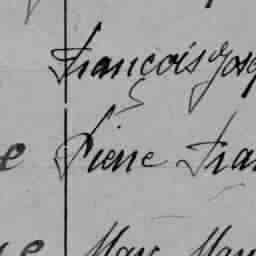 François Jos
e Pierre Fra
e Marc Mar